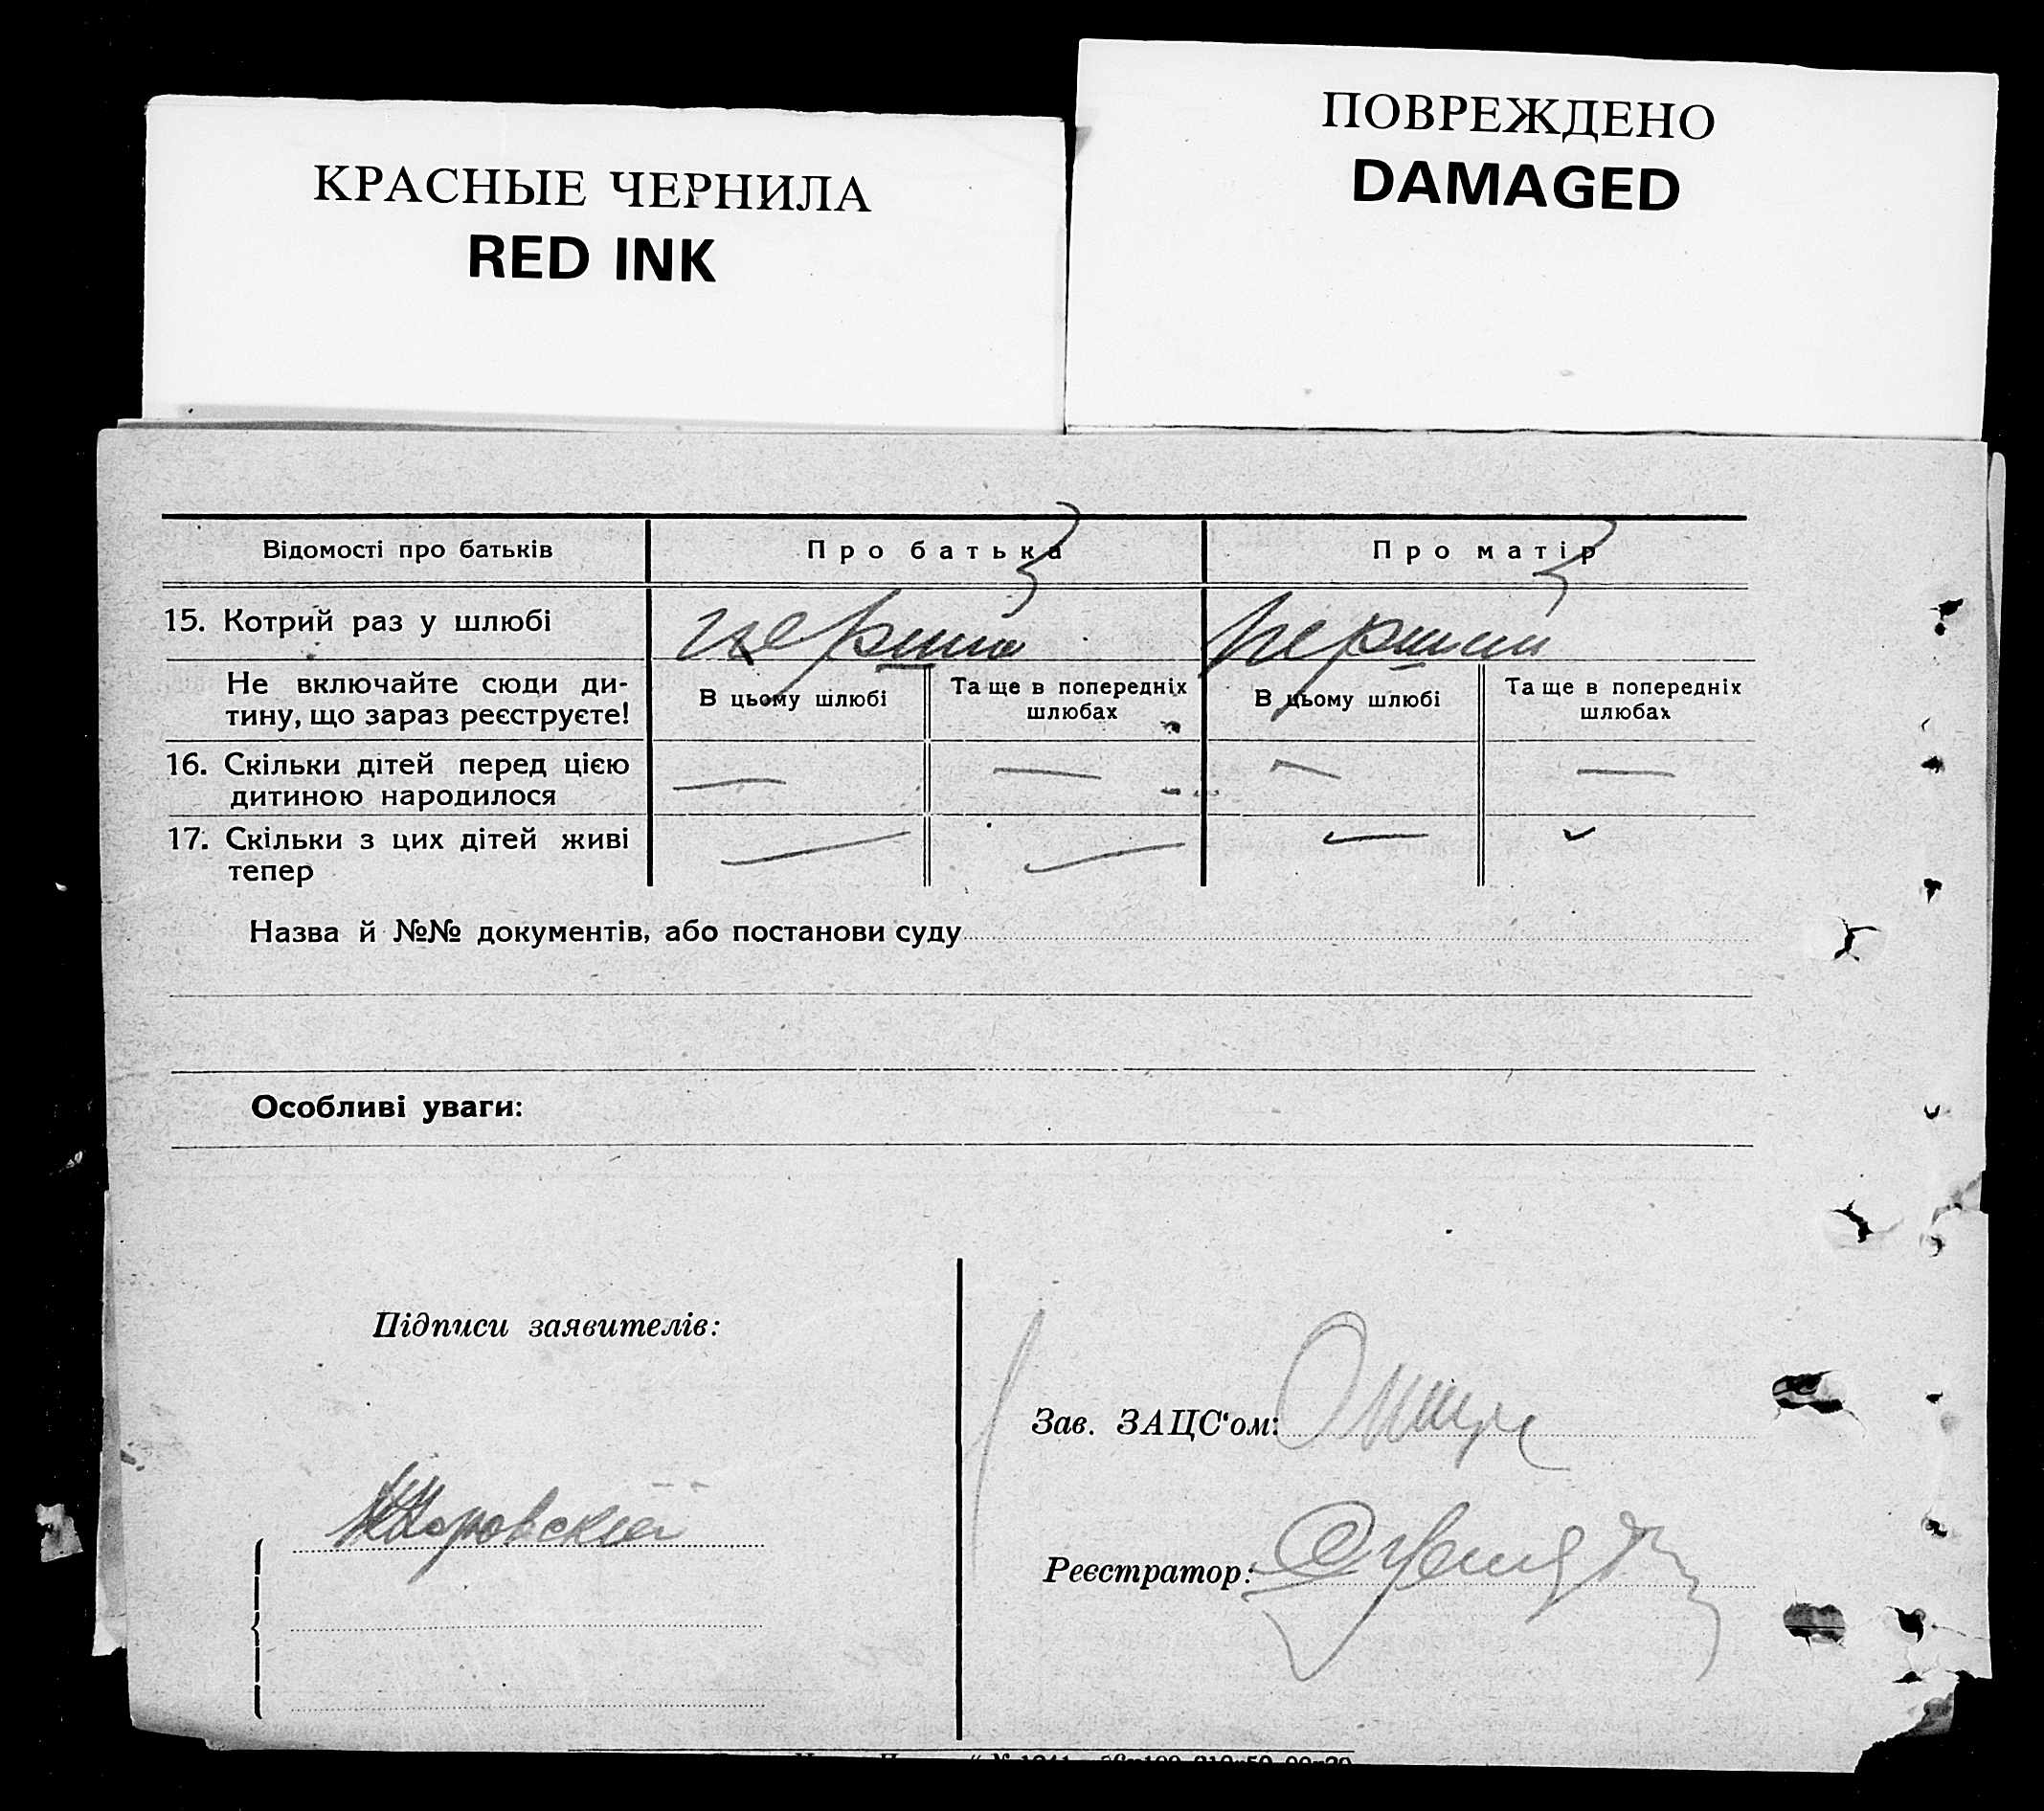 КРАСНЫЕ ЧЕРНИЛА
RED INK
ПОВРЕЖДЕНО
DAMAGED
Відомості про батьків
Про батька
Про матір
15. Котрий раз у шлюбі
перший
перший
Не включайте сюди ди-
тину, що зараз реєструєте!
В цьому шлюбі
Та ще в попередніх
шлюбах
В цьому шлюбі
Та ще в попередніх
шлюбах
16. Скільки дітей перед цією
дитиною народилося
— — — —
17. Скільки з цих дітей живі
тепер
— — —
Назва й №№ документів, або постанови суду
Особливі уваги:
Підписи заявителів:
Зав. ЗАЦС‘ом:
Реєстратор: